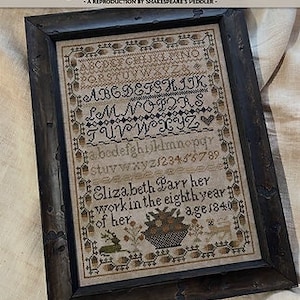 - A REPRODUCTION BY SHAKESPEARE'S PEDDLER -
ABCDEFGHIJK
LMNOPQRS
TUVWXYZ
abcdefghijklmnopqr
stuvwxyz123456789
Elizabeth Parr her
work in the eighth year
of her age 184